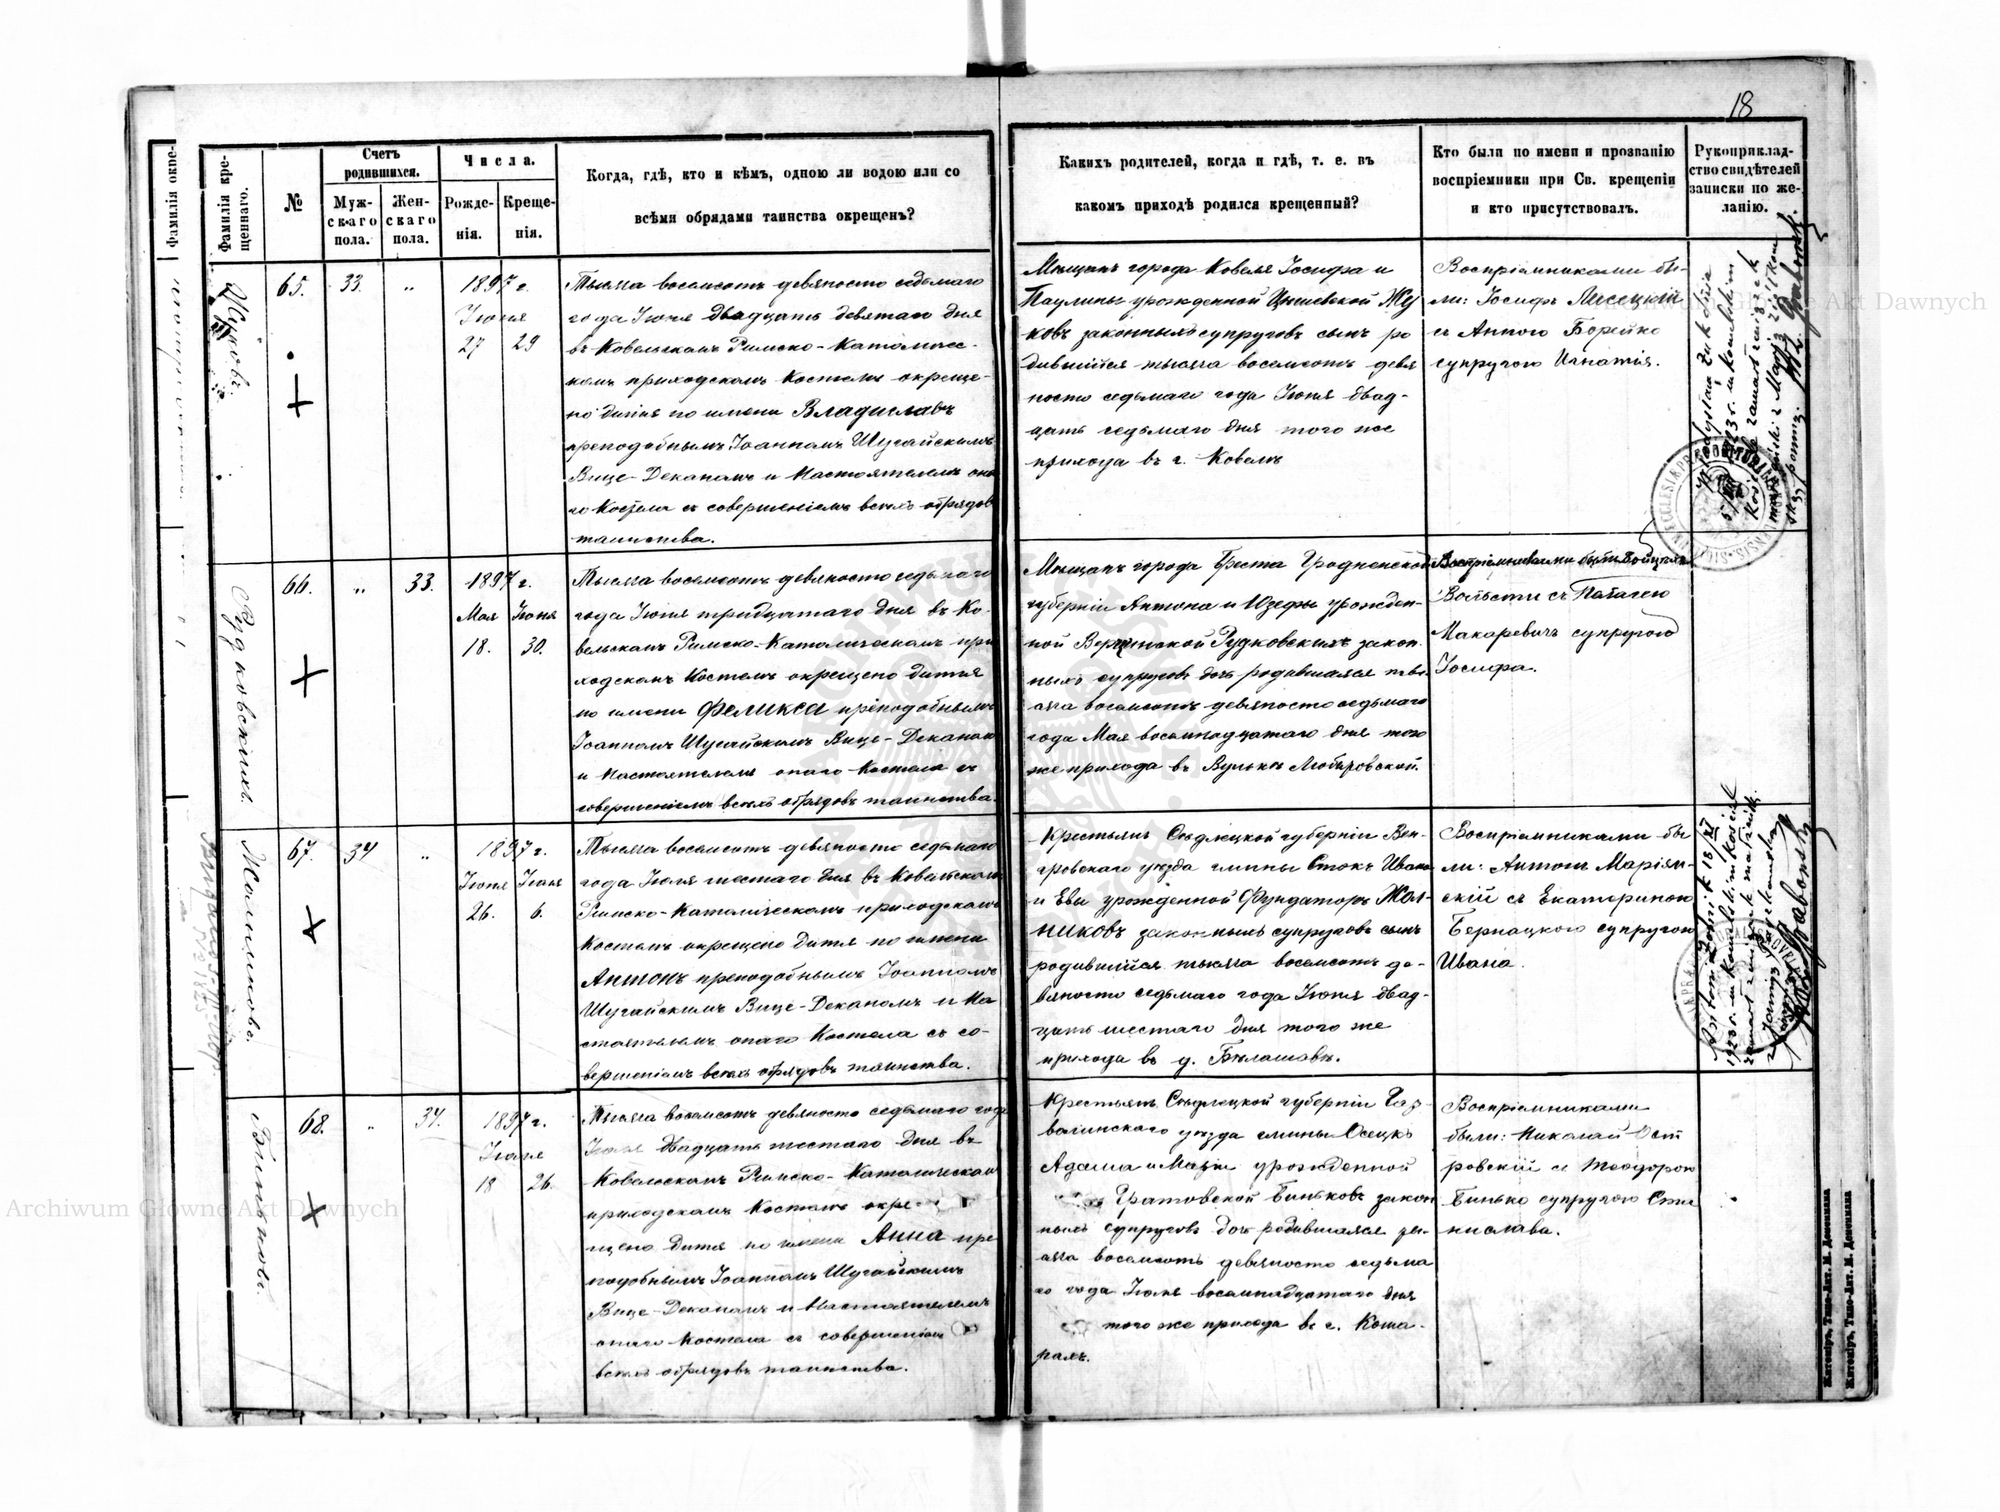 18
Фамилія окре-
Фамилія кре-
щеннаго.
№
Счетъ
родившихся.
Муж-
скаго
пола.
Жен-
скаго
пола.
Числа.
Рожде-
нія.
Креще-
нія.
Когда, гдѣ, кто и кѣмъ, одною ли водою или со
всѣми обрядами таинства окрещенъ?
Какихъ родителей, когда и гдѣ, т. е. въ
какомъ приходѣ родился крещенный?
Кто были по имени и прозванію
воспріемники при Св. крещеніи
и кто присутствовалъ.
Рукоприклад-
ство свидѣтелей
записки по же-
ланію.
65.
33.
"
1897 г.
Іюня
27 29
Тысяча восемсотъ девяносто седьмаго
года Іюня двадцать девятаго дня
въ Ковельскомъ Римско-Католичес-
комъ приходскомъ Костелѣ окреще-
но дитя по имени Владиславъ
преподобнымъ Іоанномъ Шугайскимъ
Вице-Деканомъ и Настоятелемъ она
го Костела съ совершеніемъ всѣхъ обрядовъ
таинства.
Мѣщанъ города Ковеля Іосифа и
Паулины урожденной Жу
ковъ законныхъ супруговъ сынъ ро
дившійся тысяча восемсотъ девя
носто седьмаго года Іюня двад-
цать седьмаго дня того же
прихода въ г. Ковелѣ
Воспріемниками бы-
ли: Іосифъ Лисецкій
съ Анною Борейко
супругою Игнатія.
Рудковскихъ.
66.
"
33.
1897 г.
Мая Іюня
18. 30.
Тысяча восемсотъ девяносто седьмаго
года Іюня тридцатаго дня въ Ко-
вельскомъ Римско-Католическомъ при
ходскомъ Костелѣ окрещено дитя
по имени Феликса преподобнымъ
Іоанномъ Шугайскимъ Вице-Деканомъ
и Настоятелемъ онаго Костела съ
совершеніемъ всѣхъ обрядовъ таинства.
Мѣщанъ города Бреста Гродненской
губерніи Антона и Юзефы урожден-
ной Рудковскихъ закон
ныхъ супруговъ дочь родившаяся ты-
сяча восемсотъ девяносто седьмаго
года Мая восемнадцатаго дня того
же прихода въ Вулькѣ
Воспріемниками были Войцехъ
съ Пелагею
Макаревичъ супругою
Іосифа.
Жолниковъ.
67.
34
"
1897 г.
Іюня Іюля
26. 6.
Тысяча восемсотъ девяносто седьмаго
года Іюля шестаго дня въ Ковельскомъ
Римско-Католическомъ приходскомъ
Костелѣ окрещено дитя по имени
Антонъ преподобнымъ Іоанномъ
Шугайскимъ Вице-Деканомъ и На
стоятелемъ онаго Костела съ со-
вершеніемъ всѣхъ обрядовъ таинства.
Крестьянъ Сѣдлецкой губерніи Вен-
гровскаго уѣзда гмины Стокъ Ивана
и Евы урожденной Фундаторъ Жол-
никовъ законныхъ супруговъ сынъ
родившійся тысяча восемсотъ де-
вяносто седьмаго года Іюня двад-
цать шестаго дня того же
прихода въ д. Бѣлашовѣ.
Воспріемниками бы
ли: Антонъ Маріян-
скій съ Екатериною
Бернацкою супругою
Ивана.
Биньковъ.
68.
"
34.
1897 г.
Іюля
18 26.
Тысяча восемсотъ девяносто седьмаго года
Іюля двадцать шестаго дня въ
Ковельскомъ Римско-Католическомъ
приходскомъ Костелѣ окре-
щено дитя по имени Анна пре
подобнымъ Іоанномъ Шугайскимъ
Вице-Деканомъ и Настоятелемъ
онаго Костела съ совершеніемъ
всѣхъ обрядовъ таинства.
Крестьянъ Сѣдлецкой губерніи Гар
волинскаго уѣзда гмины Осецкъ
Адама и Маріи урожденной
Гратовской Биньковъ закон
ныхъ супруговъ дочь родившаяся ты-
сяча восемсотъ девяносто седьма
го года Іюля восемнадцатаго дня
того же прихода въ с. Коша-
рахъ.
Воспріемниками
были: Николай Ост
ровскій съ Теодорою
Бинько супругою Ста
нислава.
Archiwum Główne Akt Dawnych
Archiwum Główne Akt Dawnych
Житоміръ, Типо-Лит. М. Дененмана
Житоміръ, Типо-Лит. М. Дененмана